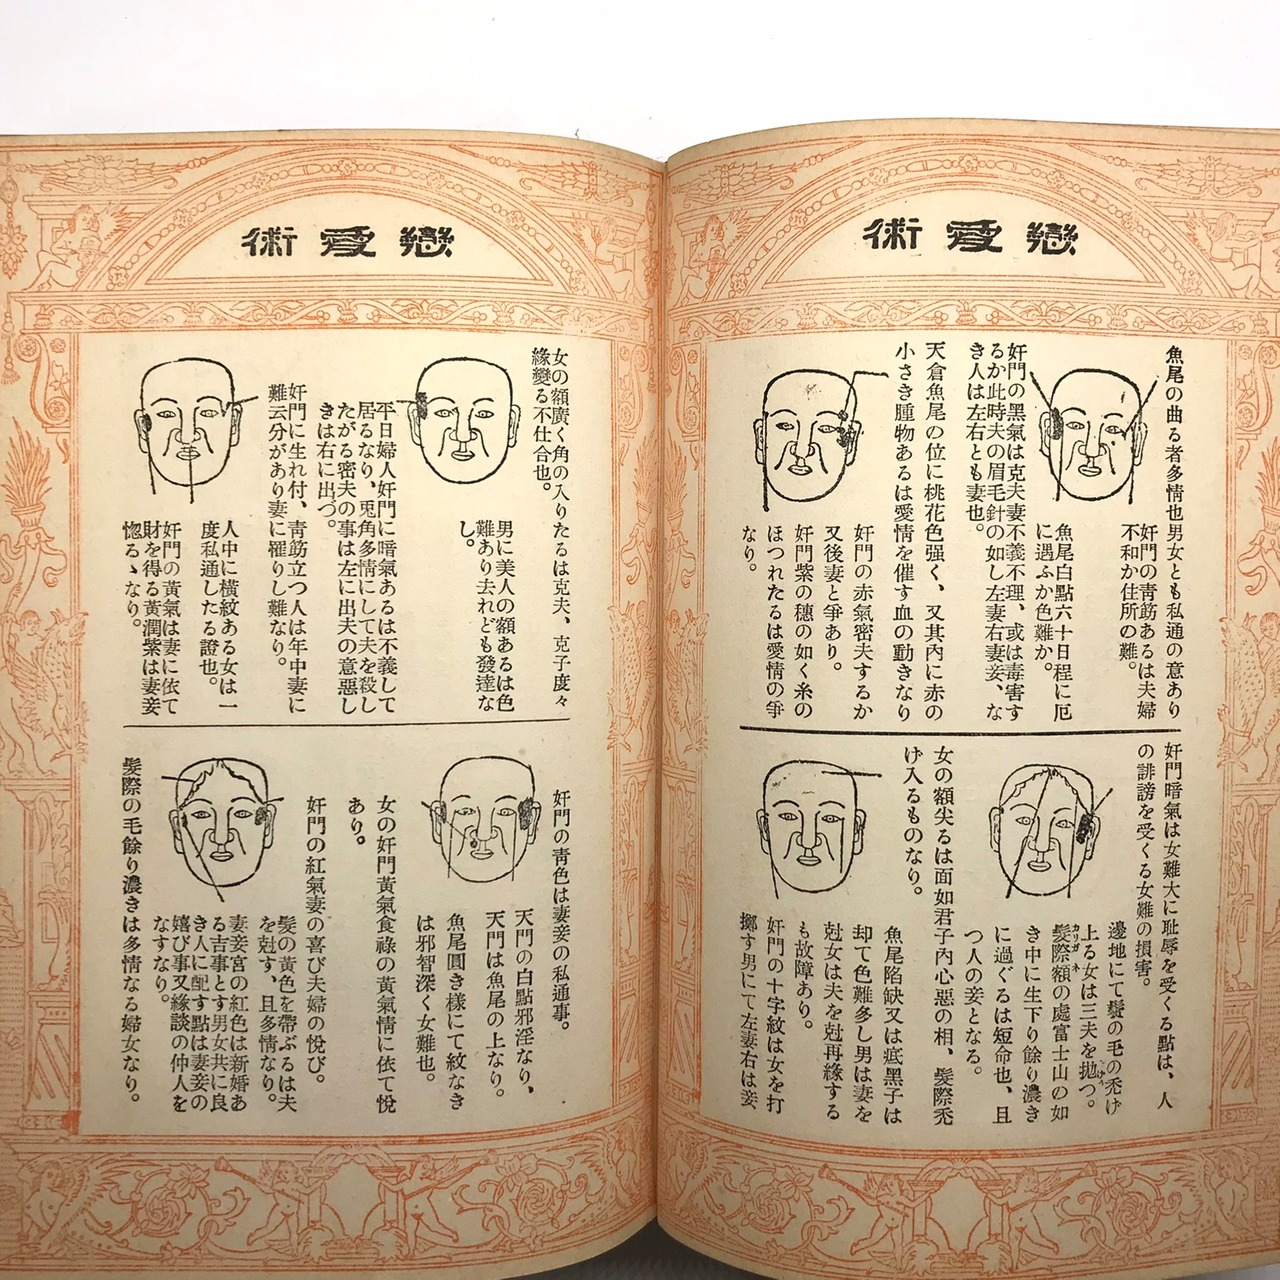 戀愛術
魚尾の曲る者多情也男女とも私通の意あり
奸門の靑筋あるは夫婦
不和か住所の難。
魚尾白點六十日程に厄
に遇ふか色難か。
奸門の黑氣は克夫妻不義不理、或は毒害す
るか此時夫の眉毛針の如し左妻右妻妾、な
き人は左右とも妻也。
天倉魚尾の位に桃花色强く、又其內に赤の
小さき腫物あるは愛情を催す血の動きなり
奸門の赤氣密夫するか
又後妻と爭あり。
奸門紫の穗の如く糸の
ほつれたるは愛情の爭
なり。
奸門暗氣は女難大に耻辱を受くる點は、人
の誹謗を受くる女難の損害。
邊地にて鬢の毛の禿げ
上る女は三夫を抛つ。
髮際額の處富士山の如
き中に生下り餘り濃き
に過ぐるは短命也、且
つ人の妾となる。
女の額尖るは面如君子內心惡の相、髮際禿
げ入るものなり。
魚尾陷缺又は痣黑子は
却て色難多し男は妻を
尅女は夫を尅再緣する
も故障あり。
奸門の十字紋は女を打
擲す男にて左妻右は妾
戀愛術
女の額廣く角の入りたるは克夫、克子度々
緣變る不仕合也。
男に美人の額あるは色
難あり去れども發達な
し。
平日婦人奸門に暗氣あるは不義して
居るなり、兎角多情にして夫を殺し
たがる密夫の事は左に出夫の意惡し
きは右に出づ。
奸門に生れ付、靑筋立つ人は年中妻に
難云分があり妻に罹りし難なり。
人中に橫紋ある女は一
度私通したる證也。
奸門の黃氣は妻に依て
財を得る黃潤紫は妻妾
惚るゝなり。
奸門の靑色は妻妾の私通事。
天門の白點邪淫なり、
天門は魚尾の上なり。
魚尾圓き樣にて紋なき
は邪智深く女難也。
女の奸門黃氣食祿の黃氣情に依て悅
あり。
奸門の紅氣妻の喜び夫婦の悅び。
髮の黃色を帶ぶるは夫
を尅す、且多情なり。
妻妾宮の紅色は新婚あ
る吉事とす男女共に良
き人に配す點は妻妾の
嬉び事又緣談の仲人を
なすなり。
髮際の毛餘り濃きは多情なる婦女なり。